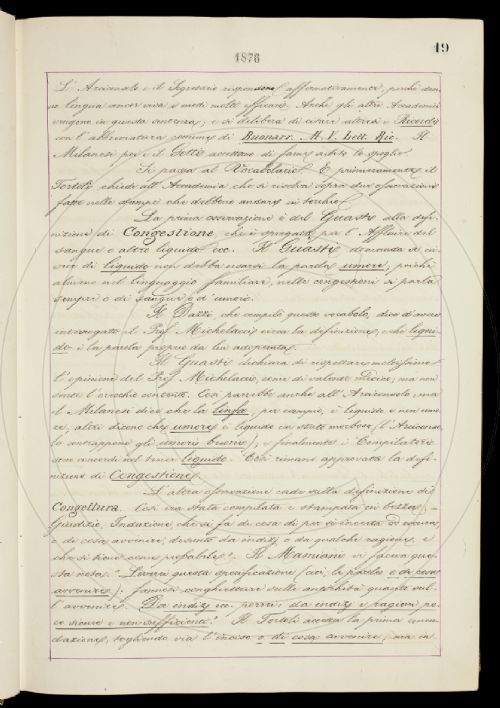 19
1876
L'Arciconsolo e il Segretario rispondono affermativamente, perchè
lingua ancor viva e modi molto efficaci. Anche gli altri Accademici
vengono in questa sentenza; e si delibera di citare altresì i Ricordi
con l'abbreviatura comune di Buonarr. M. V. Lett. Ric. Il
Milanesi poi e il Gotti accettano di farne subito lo spoglio.
Si passa al Vocabolario. E primieramente il
Tortoli chiede all'Accademia che si risolva sopra due osservazioni
fatte nelle stampe che debbono andare in torchio.
La prima osservazione è del Guasti alla defi-
nizione di Congestione, che è spiegata per l'Afflusso del
sangue o altro liquido ecc. Il Guasti domanda se in-
vece di liquido non debba usarsi la parola umore; poichè
almeno nel linguaggio familiare, nelle congestioni si parla
sempre o di sangue o d'umore.
Il Dazzi, che compilò questo vocabolo, dice di avere
interrogato il Prof. Michelacci circa la definizione, e che liqui-
do è la parola propria da lui adoperata.
Il Guasti dichiara di rispettare moltissimo
l'opinione del Prof. Michelacci, come di valente medico, ma non
Così parrebbe anche all'Arciconsolo; ma
il Milanesi dice che la linfa, per esempio, è liquido e non umo-
re, altri dicono che umore è liquido in stato morboso (l'Arciconso-
lo contrappone gli umori buoni), e finalmente i Compilatori
sono concordi nel tener liquido. Così rimane approvata la defi-
nizione di Congestione.
L'altra osservazione cade sulla definizione di
Congettura. Così era stata compilata e stampata in bozza: "
Giudizio, Induzione che si fa di cosa di per sè incerta od oscura,
o di cosa avvenire, desunto da indizj o da qualche ragione, e
che si tiene come probabile". Il Mamiani vi faceva que-
sta nota: "Leverei questa specificazione (cioè, le parole o di cosa
avvenire). Fannosi conghietture sulle antichità quanto sul-
l'avvenire. Da indizj ec. porrei: da indizj e ragioni po-
co sicure e non sufficienti." Il Tortoli accetta la prima emen-
dazione, togliendo via l'inciso o di cosa avvenire; ma in